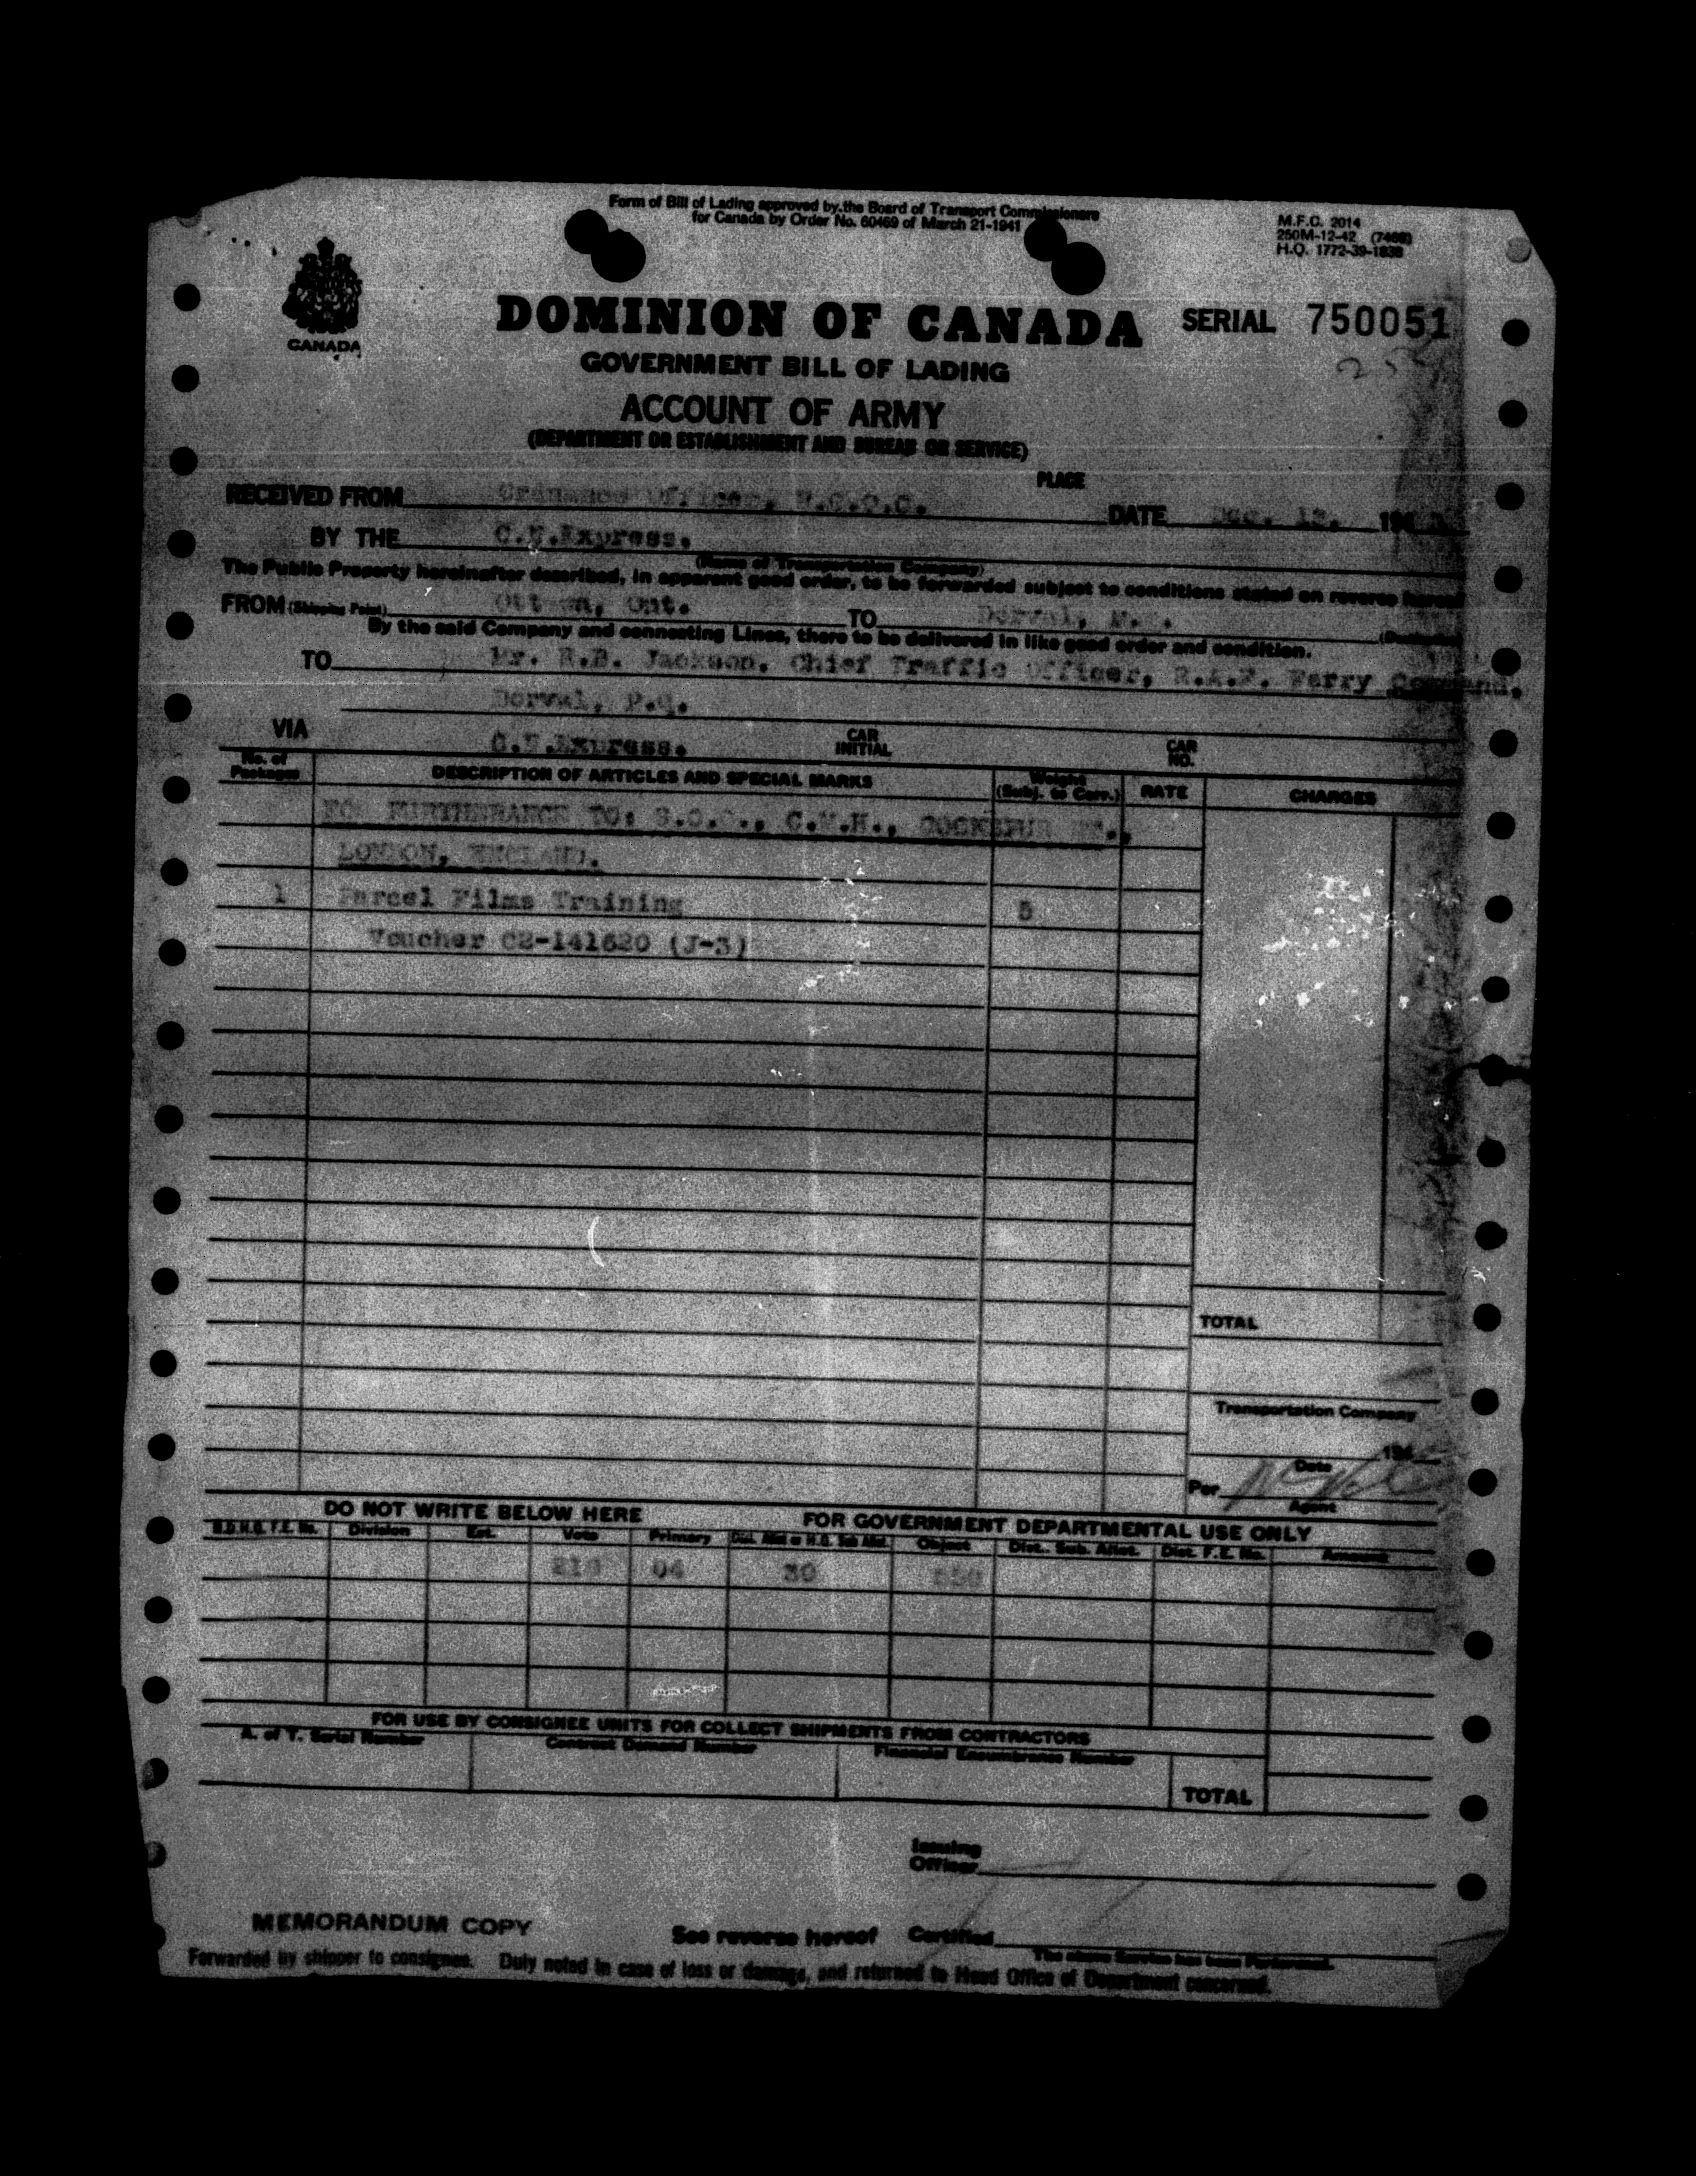 Form of Bill of Lading approved by the Board of Transport Commissioners
for Canada by Order No. 60469 of March 21-1941
M.F.C. 2014
250M-12-42
H.Q. 1772-39-1838
CANADA
DOMINION OF CANADA
SERIAL 750051
GOVERNMENT BILL OF LADING
ACCOUNT OF ARMY
(DEPARTMENT OR ESTABLISHMENT AND BUREAU OR SERVICE)
PLACE
RECEIVED FROM Ordnance Officer,
DATE Dec. 194
BY THE C.N.Express.
(Name of Transportation Company)
The Public Property hereinafter described, in apparent good order, to be forwarded subject to conditions stated on reverse hereof
FROM (Shipping Point) Ottawa, Ont. TO Dorval, (Destination)
By the said Company and connecting Lines, there to be delivered in like good order and condition.
TO Mr. R.B. Jackson. Chief Traffic Officer, R.A.F. Ferry Command,
Dorval, P.Q.
VIA C.N.Express. CAR INITIAL CAR NO.
No. of Packages DESCRIPTION OF ARTICLES AND SPECIAL MARKS Weight (Subj. to Corr.) RATE CHARGES
FOR FURTHERANCE TO: C.M.H., COCKSPUR ST.,
LONDON, ENGLAND.
1 Parcel Films Training 5
Voucher CZ-141620 (J-3)
TOTAL
Transportation Company
194
Date
Per
Agent
DO NOT WRITE BELOW HERE FOR GOVERNMENT DEPARTMENTAL USE ONLY
N.D.H.Q. F.E. No. Division Est. Vote Primary Dist. Allot or H.Q. Sub Allot. Object Dist. Sub. Allot. Dist. F.E. No. Amount
04 30
FOR USE BY CONSIGNEE UNITS FOR COLLECT SHIPMENTS FROM CONTRACTORS
A. of T. Serial Number Contract Demand Number Financial Encumbrance Number
TOTAL
Issuing
Officer
MEMORANDUM COPY See reverse hereof Certified
The above Service has been Performed.
Forwarded by shipper to consignee. Duly noted in case of loss or damage, and returned to Head Office of Department concerned.